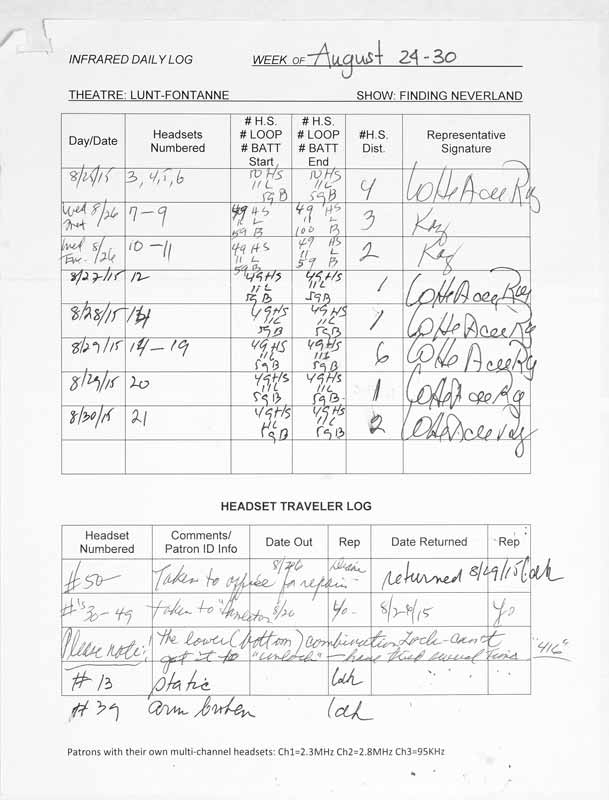 INFRARED DAILY LOG WEEK OF August 24-30
THEATRE: LUNT-FONTANNE SHOW: FINDING NEVERLAND
Day/Date Headsets Numbered # H.S. # LOOP # BATT Start # H.S. # LOOP # BATT End #H.S. Dist. Representative Signature
8/25/15 3, 4, 5, 6 50 HS 11L 59B 50 HS 11L 59B 4
Wed 8/26 7-9 49 HS 11 L 59 B 49 HS 11 L 100 B 3 Kay
Wed Eve. 8/26 10-11 49 HS 11 L 59 B 49 HS 11 L 59 B 2 Kay
8/27/15 12 49HS 11L 59B 49HS 11L 59B 1
8/28/15 49HS 11L 59B 49HS 11L 59B 1
8/29/15 14-19 49HS 11L 59B 49HS 59B 6
8/29/15 20 49HS 11L 59B 49HS 11L 59B 1
8/30/15 21 49HS 59B 49HS 11L 59B 2
HEADSET TRAVELER LOG
Headset Numbered Comments/ Patron ID Info Date Out Rep Date Returned Rep
#50 Taken to office for repair returned 8/29/15 ldh
#'s 30-49 Taken to 8/26 Yo- 8/28/15 Yo
Please note! The lower (bottom) combination Lock can't
get it to "unlock" - have tried several times "416"
#13 static ldh
#39 arm broken ldh
Patrons with their own multi-channel headsets: Ch1=2.3MHz Ch2=2.8MHz Ch3=95KHz